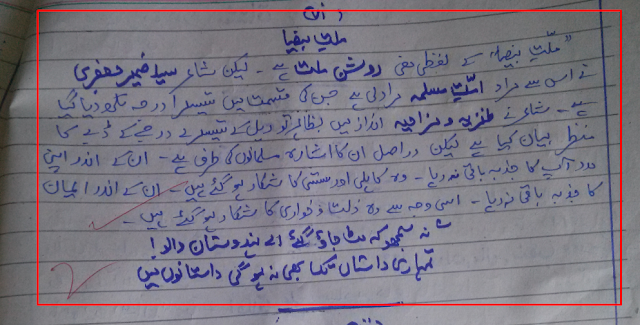 ملتِ بیضا
"ملّتِ بیضا" کے لفظی معنی روشن ملت ہے۔ لیکن شاعر سید ضمیر جعفری
نے اس سے مراد امّتِ مسلمہ مراد لی ہے جس کی قسمت میں تیسرا درجہ لکھ دیا گیا
ہے۔ شاعر نے طنزیہ و مزاحیہ انداز میں بظاہر تو ریل کے تیسرے درجے کے ڈبے کا
منظر بیان کیا ہے لیکن دراصل ان کا اشارہ مسلمانوں کی طرف ہے۔ ان کے اندر اپنی
مدد آپ کا جذبہ باقی نہ رہا۔ وہ کاہلی اور سستی کا شکار ہو گئے ہیں۔ ان کے اندر ایمان
کا جذبہ باقی نہ رہا۔ اسی وجہ سے وہ ذلت و خواری کا شکار ہو گئے ہیں۔
نہ سمجھو گے مٹ جاؤ گے اے ہندوستان والو!
تمہاری داستاں تک بھی نہ ہو گی داستانوں میں